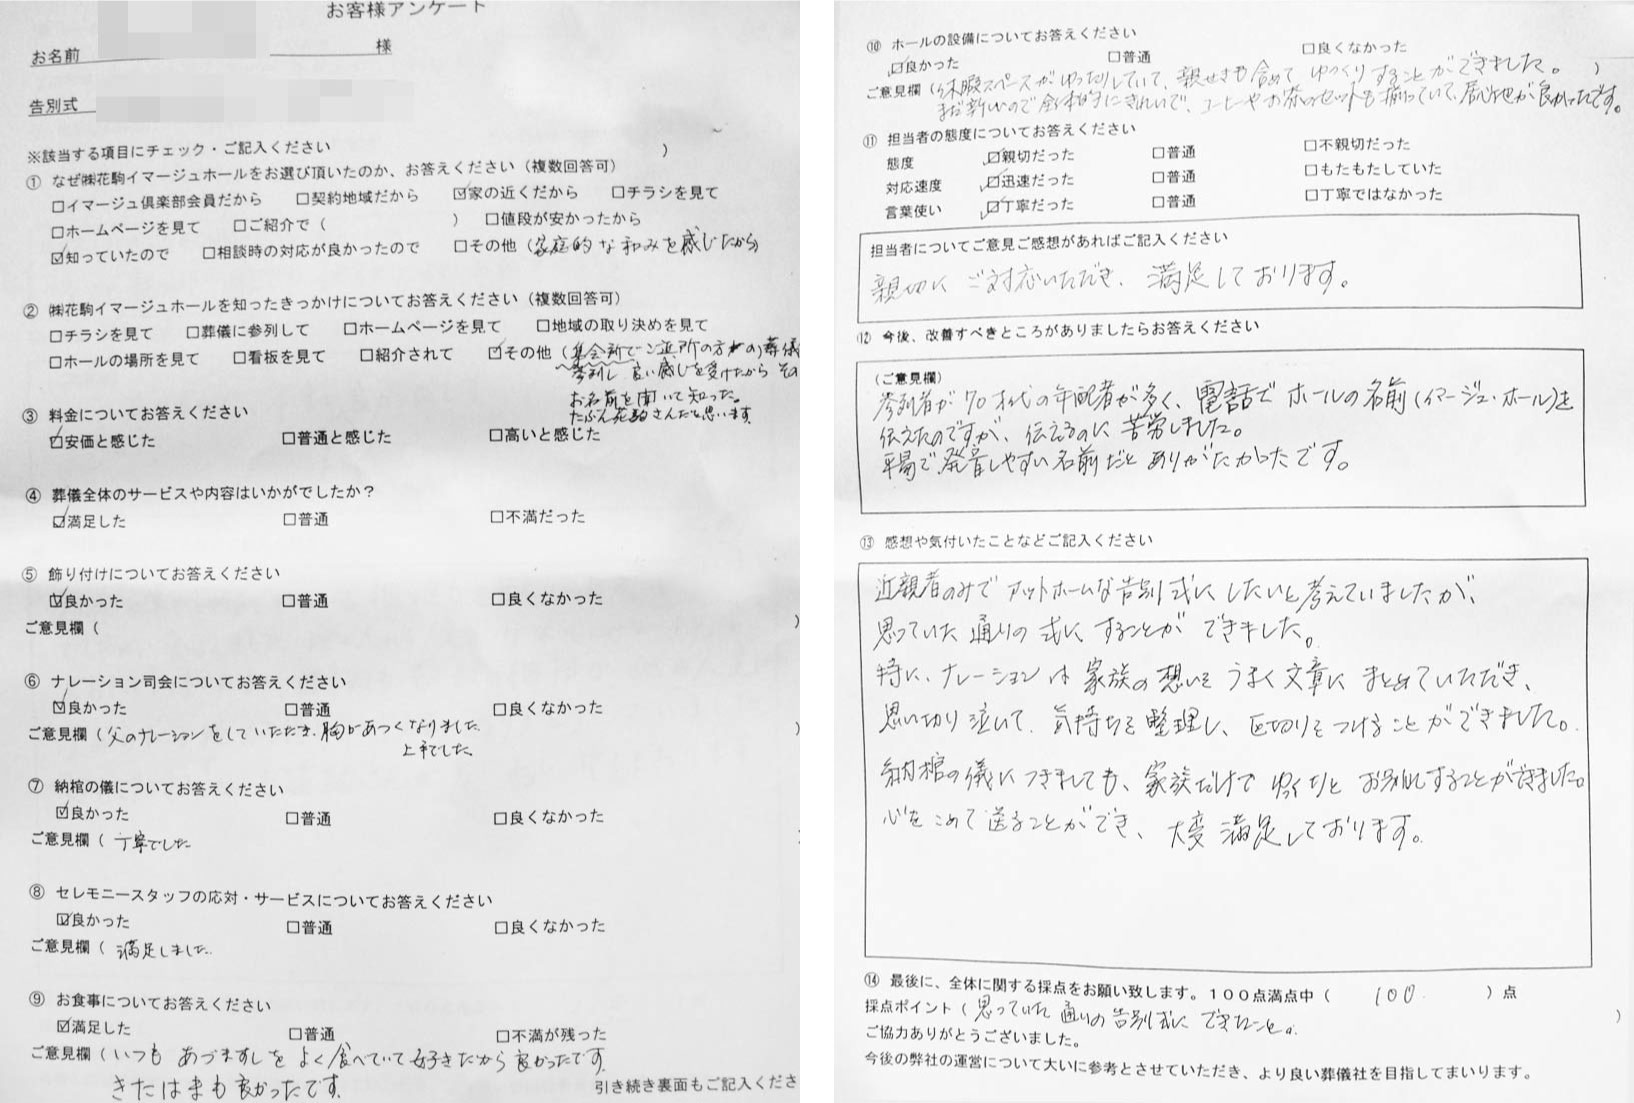 お客様アンケート
お名前　　　様
告別式
※該当する項目にチェック・ご記入ください
① なぜ㈱花駒イマージュホールをお選び頂いたのか、お答えください（複数回答可）
□イマージュ倶楽部会員だから　□契約地域だから　☑家の近くだから　□チラシを見て
□ホームページを見て　□ご紹介で（　　　）　□値段が安かったから
☑知っていたので　□相談時の対応が良かったので　□その他（家庭的な和みを感じたから）
② ㈱花駒イマージュホールを知ったきっかけについてお答えください（複数回答可）
□チラシを見て　□葬儀に参列して　□ホームページを見て　□地域の取り決めを見て
□ホールの場所を見て　□看板を見て　□紹介されて　☑その他（集会所でご近所の方の）葬儀
へ参列し、良い感じを受けたから その
お名前を聞いて知った。
たぶん花駒さんだと思います。
③ 料金についてお答えください
☑安価と感じた　□普通と感じた　□高いと感じた
④ 葬儀全体のサービスや内容はいかがでしたか？
☑満足した　□普通　□不満だった
⑤ 飾り付けについてお答えください
☑良かった　□普通　□良くなかった
ご意見欄（　　　）
⑥ ナレーション司会についてお答えください
☑良かった　□普通　□良くなかった
ご意見欄（父のナレーションをしていただき、胸があつくなりました。
上手でした。　）
⑦ 納棺の儀についてお答えください
☑良かった　□普通　□良くなかった
ご意見欄（丁寧でした
⑧ セレモニースタッフの応対・サービスについてお答えください
☑良かった　□普通　□良くなかった
ご意見欄（満足しました。
⑨ お食事についてお答えください
☑満足した　□普通　□不満が残った
ご意見欄（いつも あづまずしを よく食べていて好きだから良かったです。
きたはまも良かったです。
引き続き裏面もご記入くださ
⑩ ホールの設備についてお答えください
☑良かった　□普通　□良くなかった
ご意見欄（休暇スペースがゆったりしていて、親せきも含めて ゆっくりすることができました。　）
まだ新しいので全体的にきれいで、コーヒーやお茶のセットも揃っていて、居心地が良かったです。
⑪ 担当者の態度についてお答えください
態度　☑親切だった　□普通　□不親切だった
対応速度　☑迅速だった　□普通　□もたもたしていた
言葉使い　☑丁寧だった　□普通　□丁寧ではなかった
担当者についてご意見ご感想があればご記入ください
親切に ご対応いただき、満足しております。
⑫ 今後、改善すべきところがありましたらお答えください
（ご意見欄）
参列者が70才代の年配者が多く、電話で ホールの名前（イマージュ・ホール）を
伝えたのですが、伝えるのに 苦労しました。
平易で発音しやすい名前だと ありがたかったです。
⑬ 感想や気付いたことなどご記入ください
近親者のみで アットホームな告別式に したいと考えていましたが、
思っていた通りの 式に することが できました。
特に、ナレーションは 家族の想いを うまく文章に まとめていただき、
思い切り泣いて、気持ちを整理し、区切りをつけることができました。
納棺の儀につきましても、家族だけで ゆっくりと お別れすることができました。
心をこめて送ることができ、大変 満足しております。
⑭ 最後に、全体に関する採点をお願い致します。１００点満点中（　100　）点
採点ポイント（思っていた 通りの 告別式に できたこと。　）
ご協力ありがとうございました。
今後の弊社の運営について大いに参考とさせていただき、より良い葬儀社を目指してまいります。